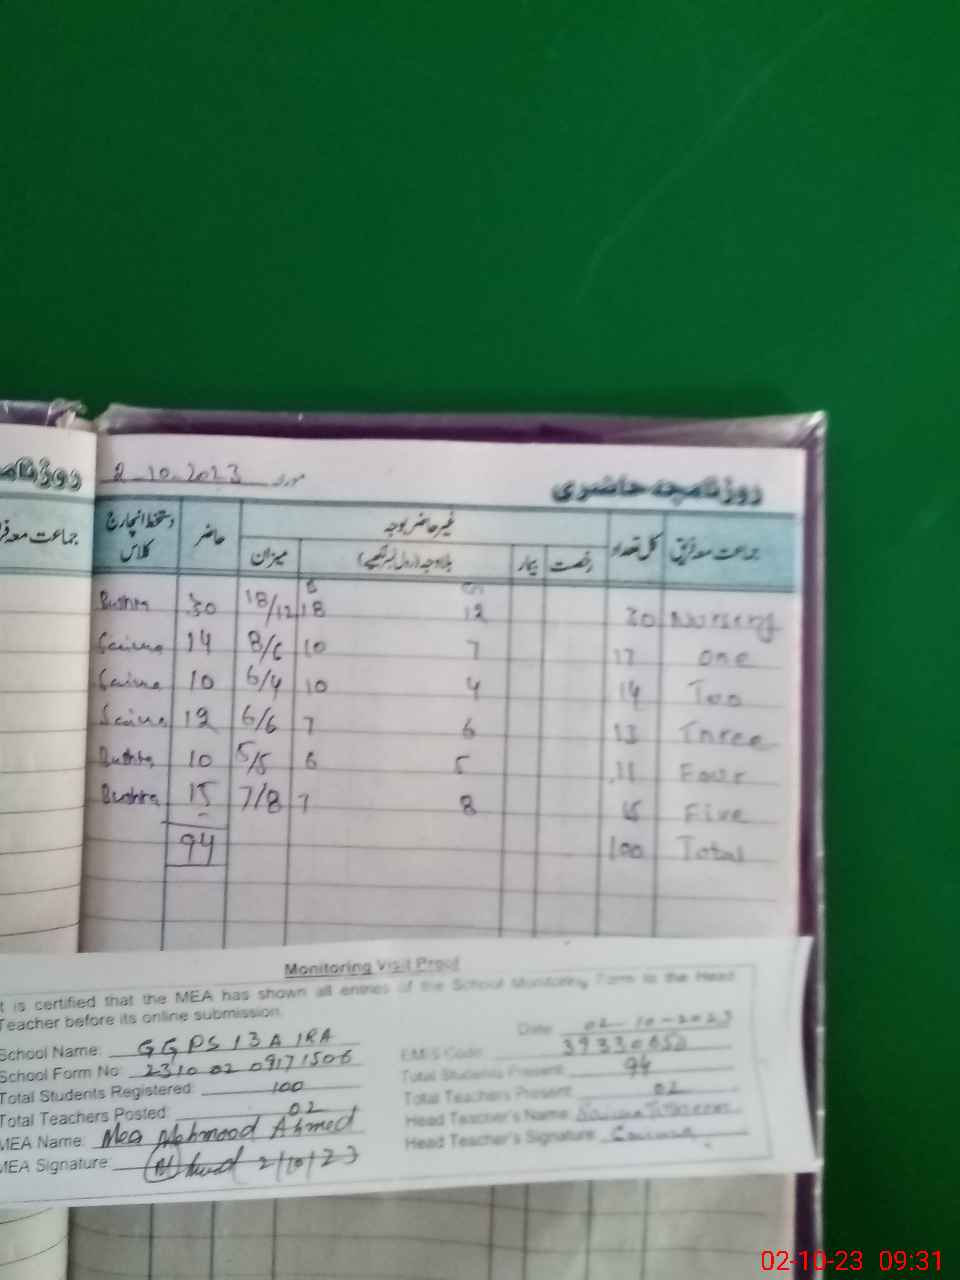 روزنامچہ حاضری
مورخہ 2-10-2023
جماعت معہ فریق کل تعداد غیر حاضر بوجہ حاضر دستخط انچارج کلاس
رخصت بیمار بلاوجہ (رول نمبر لکھیے) میزان
Bushra 30 18/12 18 12 30 Nursery
Saima 14 8/6 10 7 17 One
Saima 10 6/4 10 4 14 Two
Saima 12 6/6 7 6 13 Three
Bushra 10 5/5 6 5 11 Four
Bushra 15 7/8 7 8 15 Five
94 100 Total
Monitoring Visit Proof
t is certified that the MEA has shown all entries of the School Monitoring Form to the Head
Teacher before its online submission.
Date: 02-10-2023
School Name: GGPS 13 A 1RA
EMIS Code: 39330050
School Form No: 2310 02 09171506
Total Students Present: 94
Total Students Registered: 100
Total Teachers Present: 02
Total Teachers Posted: 02
Head Teacher's Name: Saima
MEA Name: Mea Mehmood Ahmed
Head Teacher's Signature: Saima
MEA Signature: 2/10/23
02-10-23 09:31